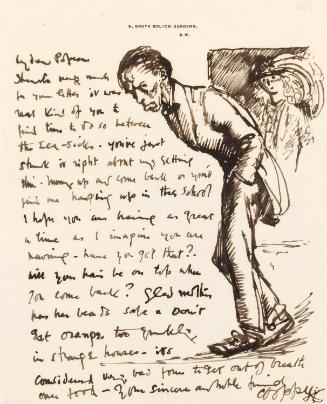 5, SOUTH BOLTON GARDENS,
S.W.
My dear
Thanks very much
for your letter it was
most kind of you to
find time to do so between
the sea-sicks - you're just
is right about my getting
thin - hurry up and come back or you'll
find me hanging up in the school
I hope you are having as great
a time as I imagine you are
having - have you got that?.
Will your hair be on top when
you come back? Glad mother
has her beads safe & Don't
eat oranges too quickly
in strange houses - its
considered very bad form to get out of breath
over food - your sincere and noble friend